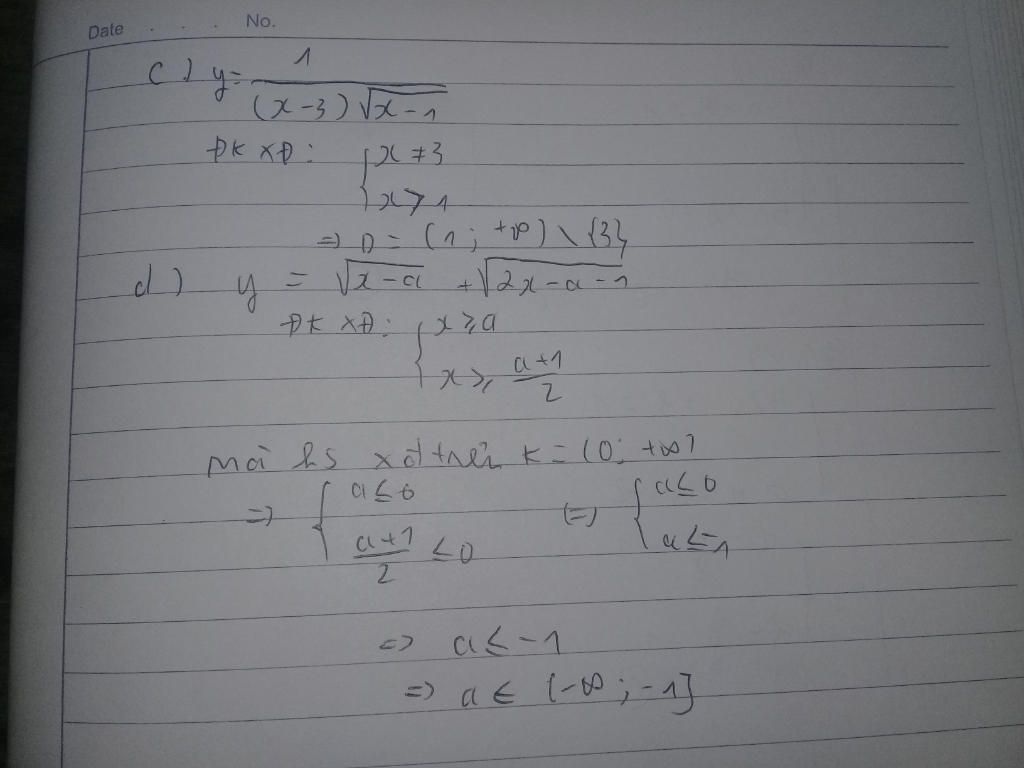 Date . . . . No.
c) y = 1 / ((x-3)√(x-1))
ĐKXĐ: { x ≠ 3
x > 1
=> D = (1; +∞) \ {3}
d) y = √(x-a) + √(2x-a-1)
ĐKXĐ: { x ≥ a
x ≥ (a+1)/2
mà hs xđ trên K = (0; +∞)
=> { a ≤ 0 (=) { a ≤ 0
(a+1)/2 ≤ 0 a ≤ -1
=> a ≤ -1
=> a ∈ (-∞; -1]